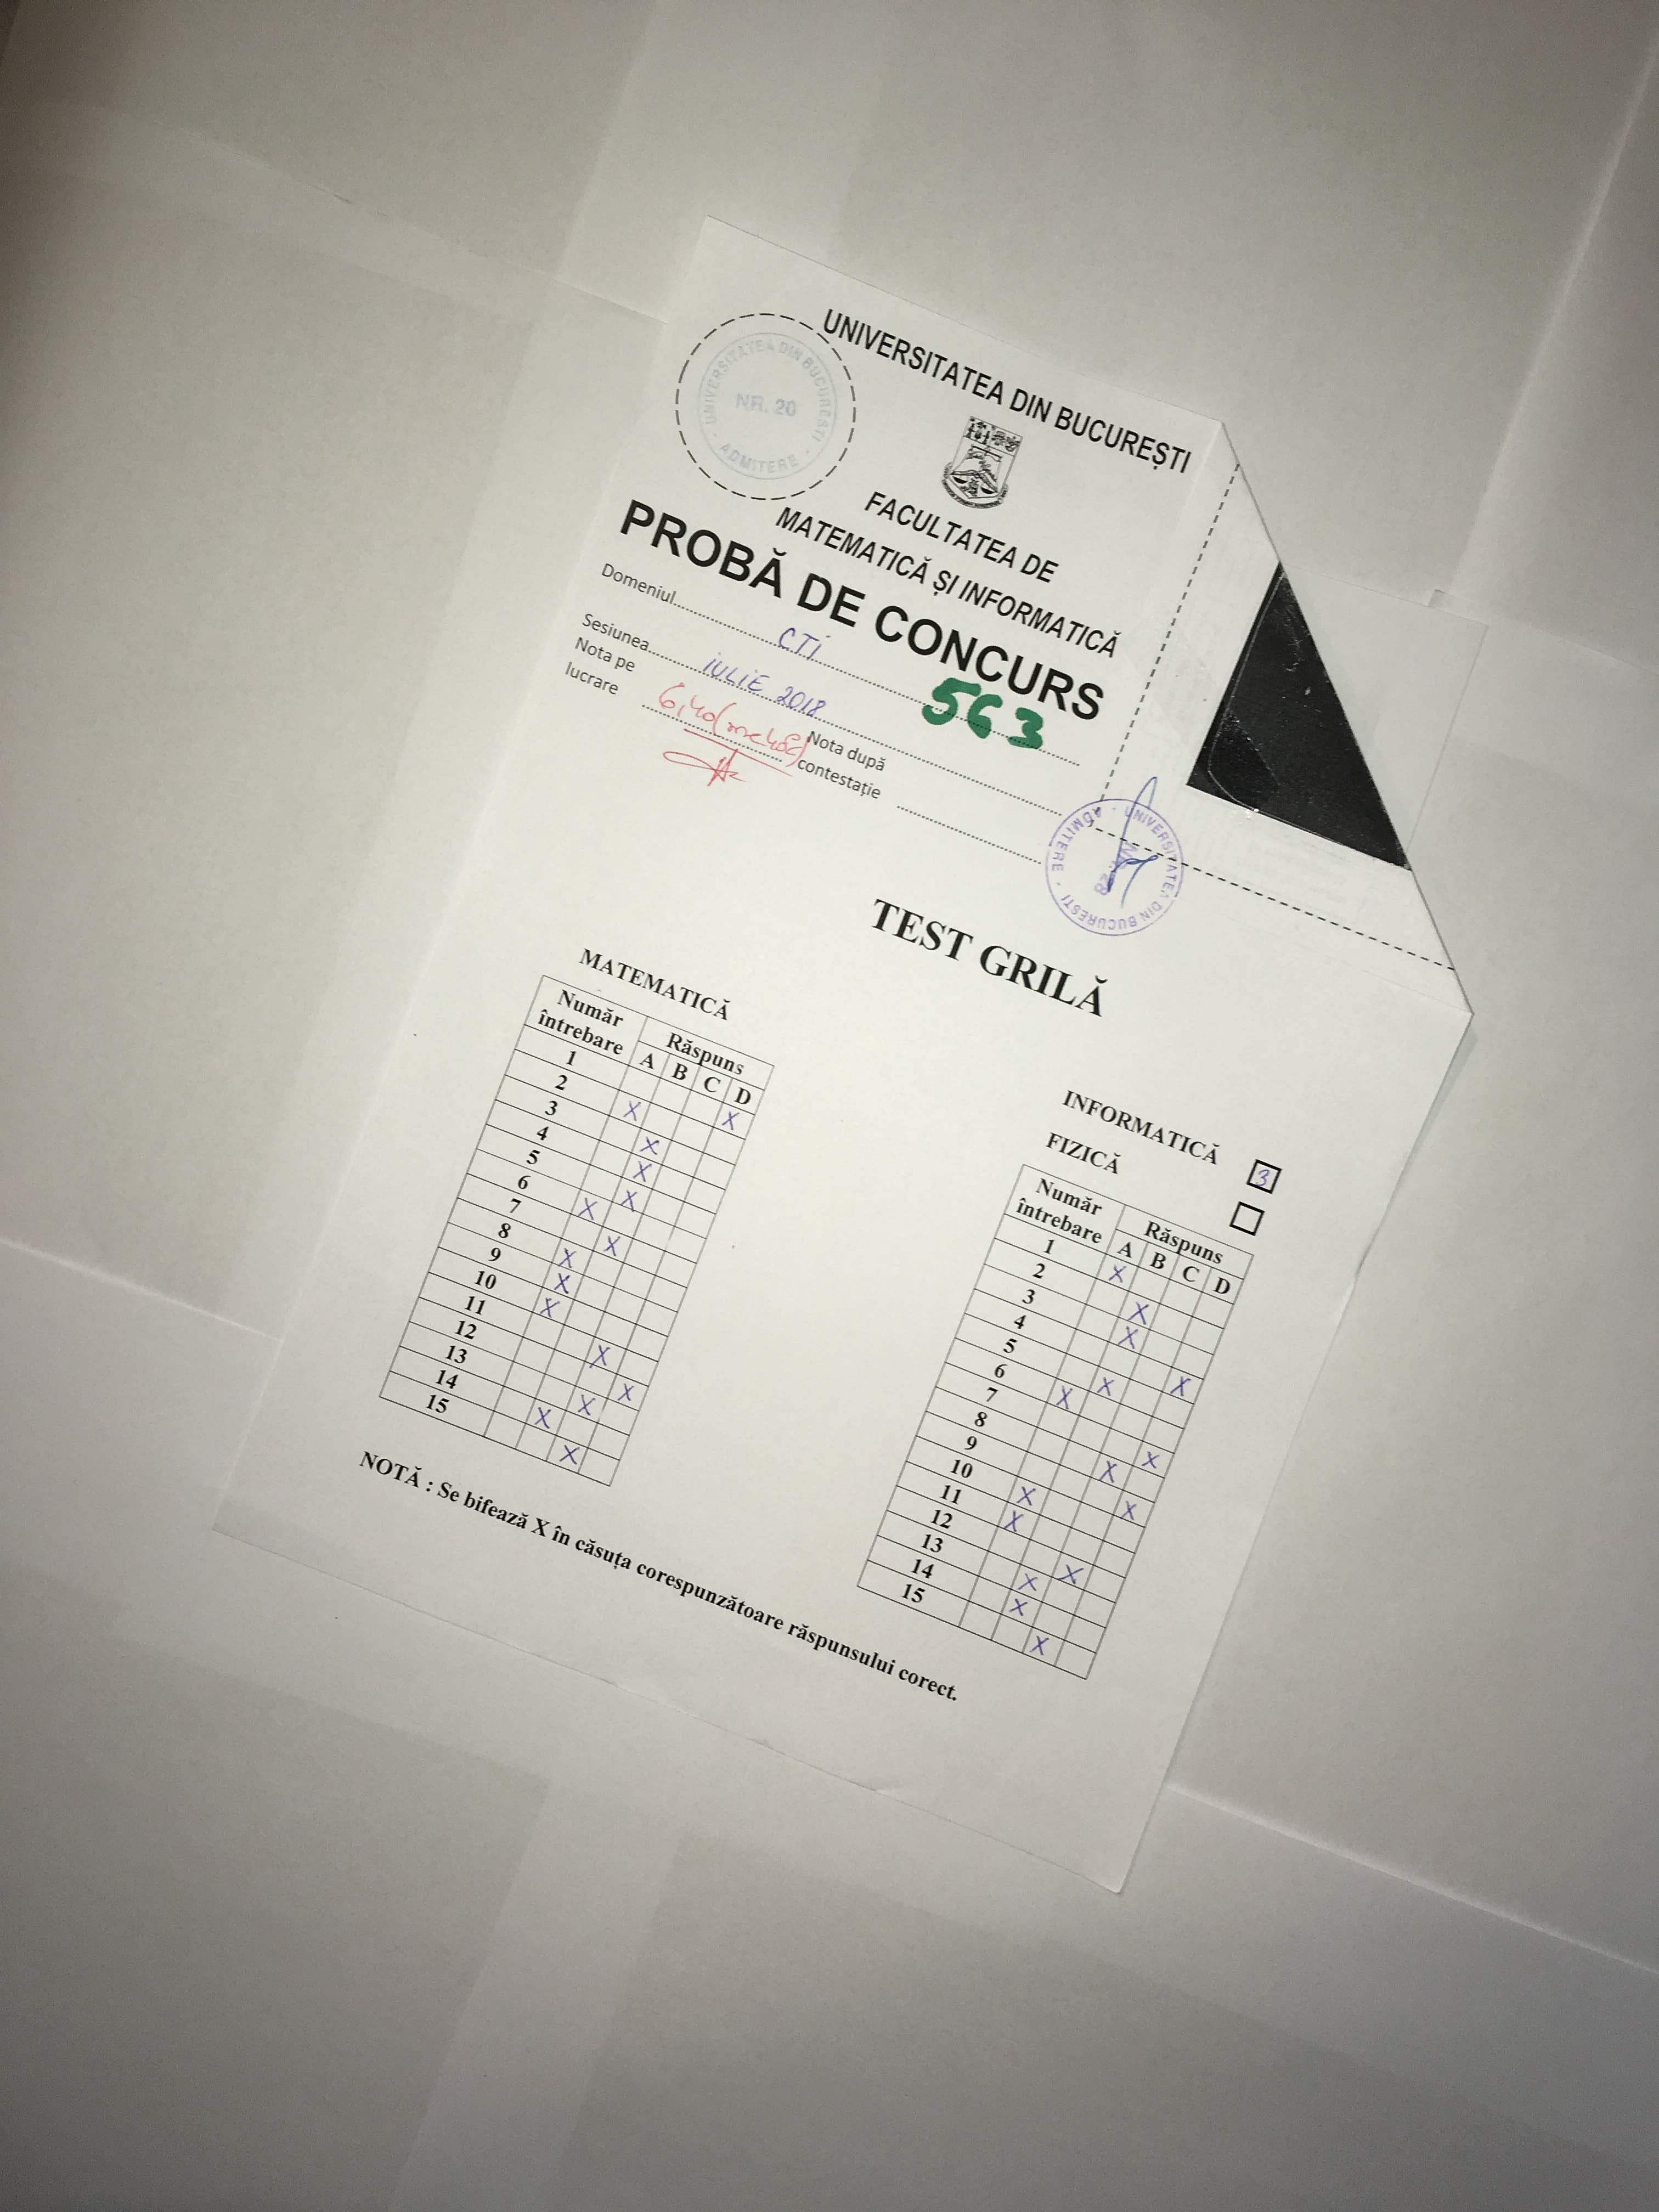 UNIVERSITATEA DIN BUCUREȘTI
UNIVERSITATEA DIN BUCURESTI · ADMITERE ·
NR. 20
FACULTATEA DE
MATEMATICĂ ȘI INFORMATICĂ
PROBĂ DE CONCURS
Domeniul CTi
563
Sesiunea IULIE 2018
Nota pe
lucrare 6,40
Nota după
contestație
UNIVERSITATEA DIN BUCURESTI · ADMITERE ·
TEST GRILĂ
MATEMATICĂ
Număr
întrebare
Răspuns
A B C D
1 X
2 X
3 X
4 X
5 X
6 X
7 X
8 X
9 X
10 X
11 X
12 X
13 X
14 X
15 X
INFORMATICĂ 3
FIZICĂ
Număr
întrebare
Răspuns
A B C D
1 X
2 X
3 X
4 X
5 X
6 X
7 X
8 X
9 X
10 X
11 X
12 X
13 X
14 X
15 X
NOTĂ : Se bifează X în căsuța corespunzătoare răspunsului corect.